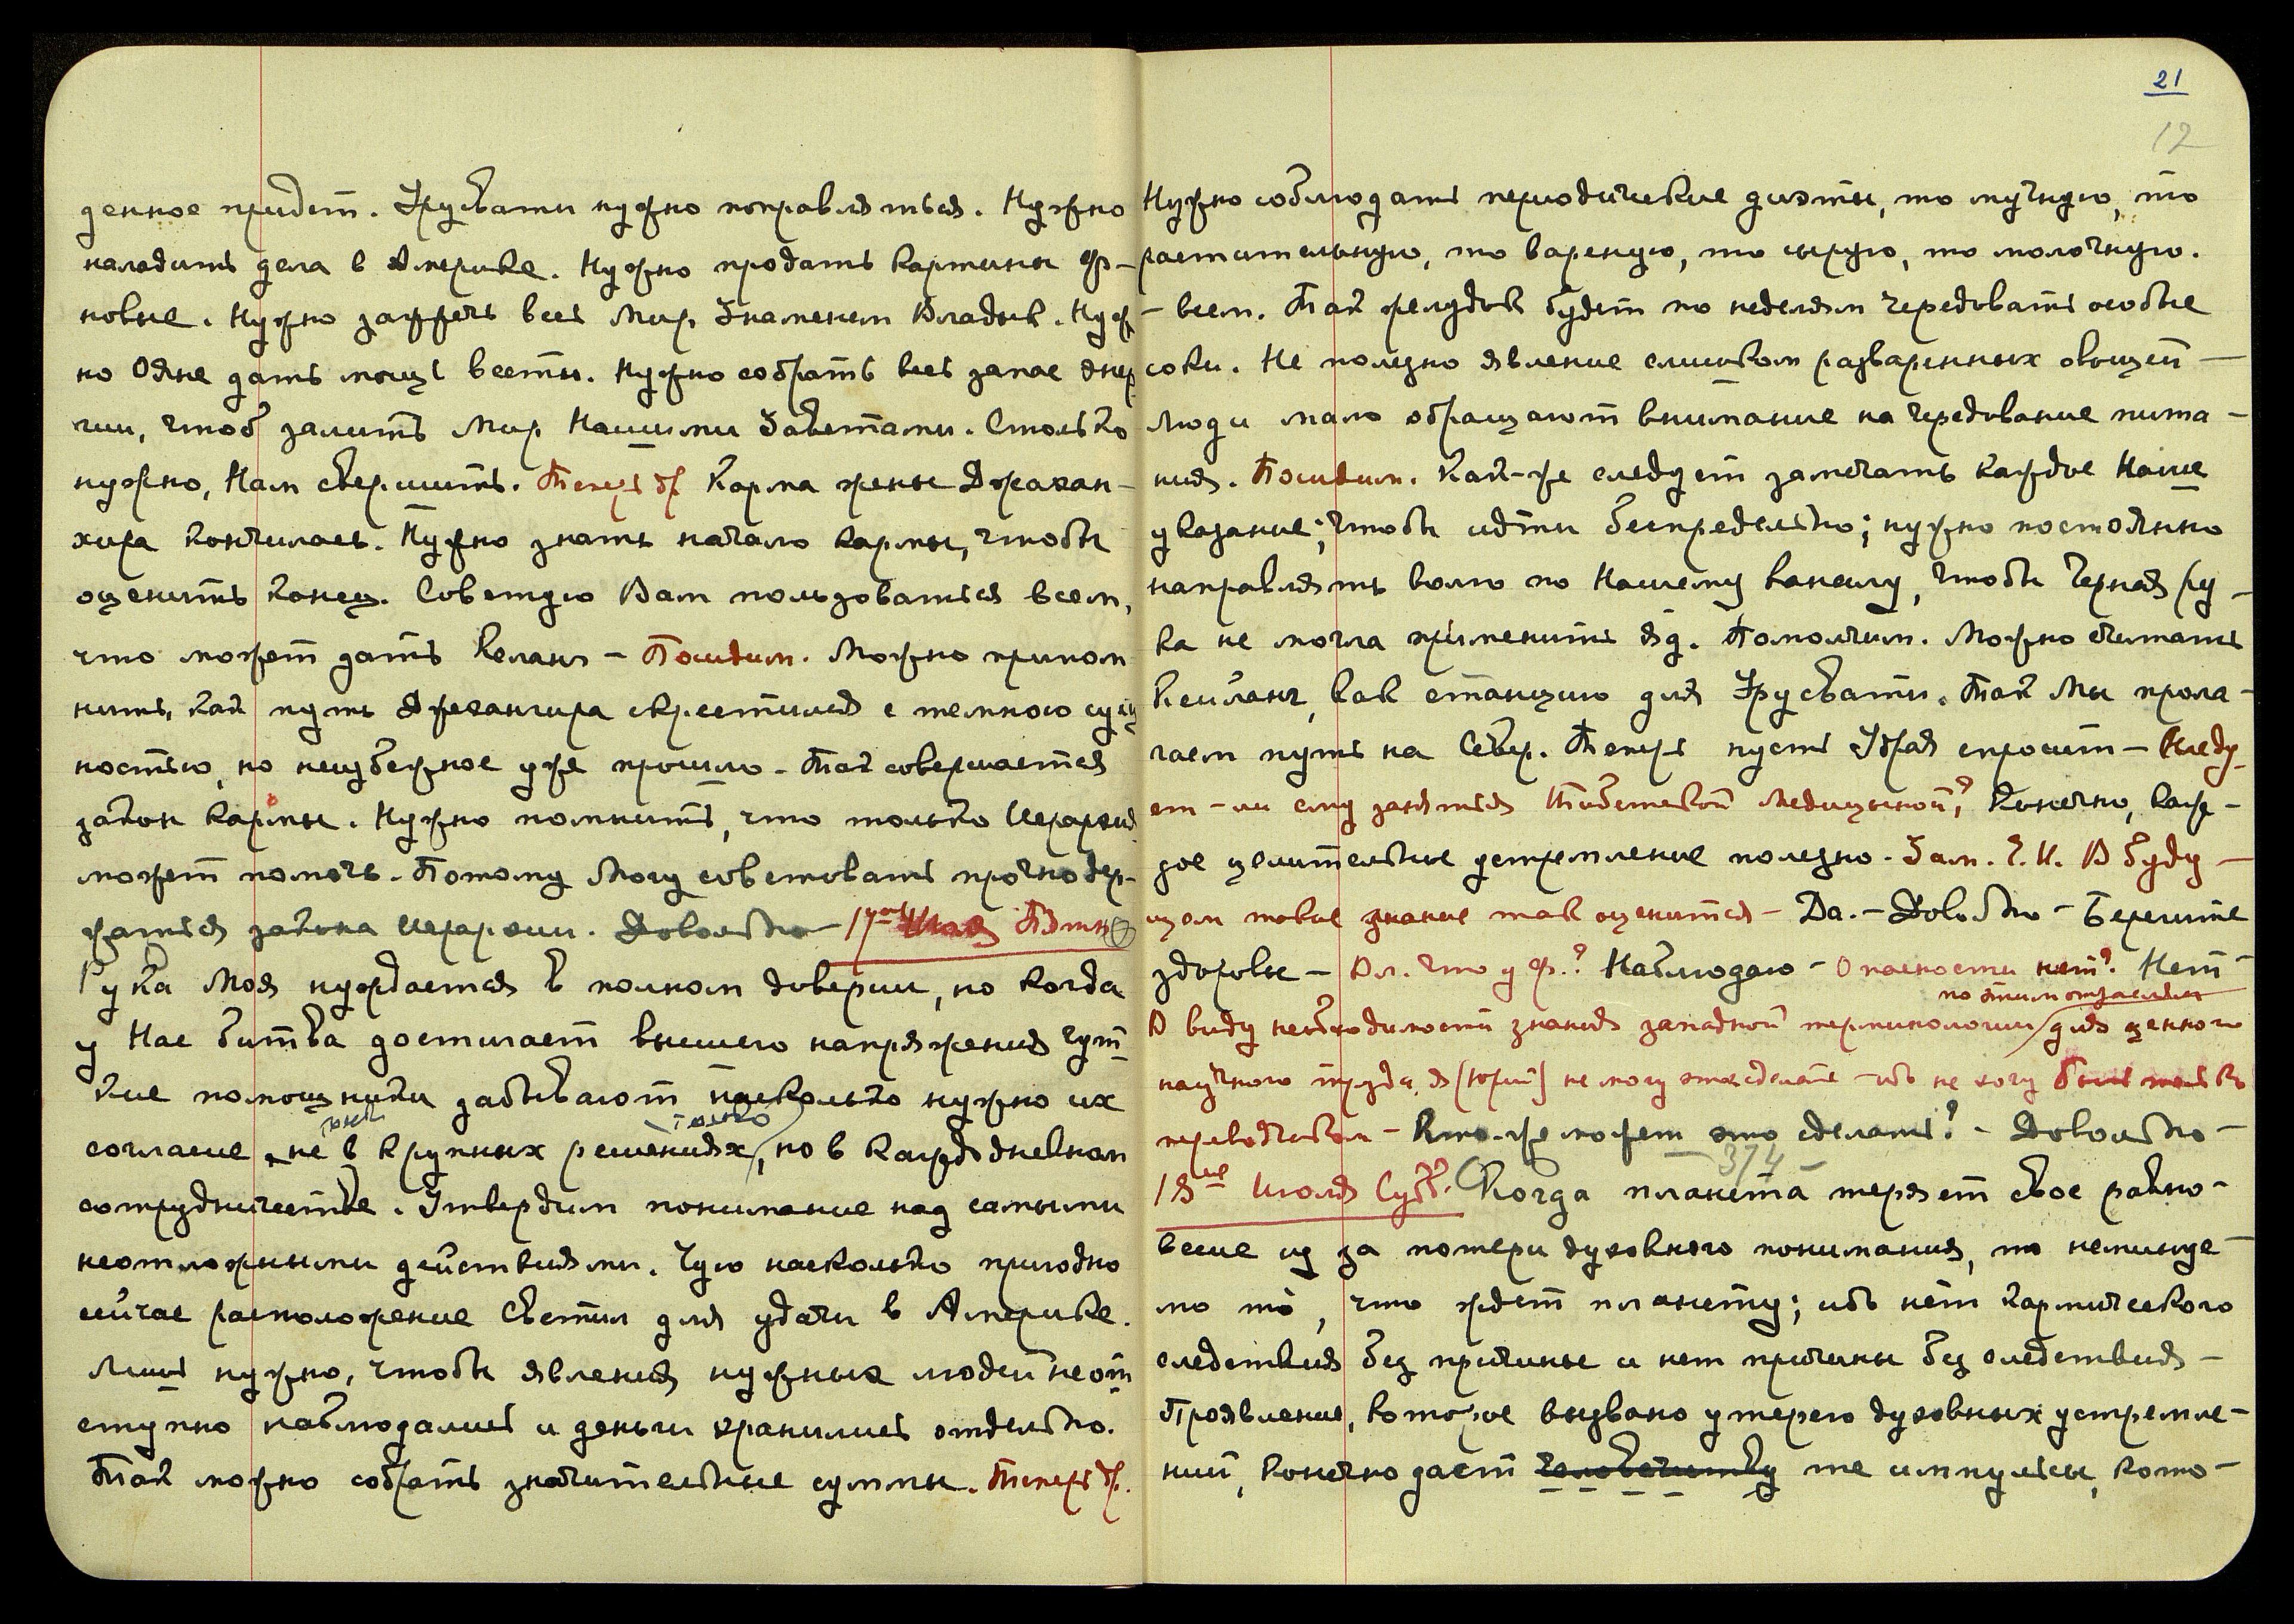 денное придет. Урусвати нужно поправляться. Нужно
наладить дела в Америке. Нужно продать картины Ф-
новые. Нужно зажечь весь Мир Знаменем Владык. Нуж
но Ояне дать мощь вести. Нужно собрать весь запас энер
гии, чтоб залить Мир Нашими Заветами. Столько
нужно, Нам свершить. Теперь др. Карма жены Джахан-
хира кончилась. Нужно знать начало кармы, чтобы
оценить конец. Советую Вам пользоваться всем,
что может дать Келанг - Посидим. Можно припом
нить, как путь Джехангира скрестился с темною сущ
ностью, но неизбежное уже прошло - Так совершается
закон кармы. Нужно помнить, что только Иерархия
может помочь. Потому Могу советовать прочно дер-
жаться закона Иерархии. Довольно - 17ое Июля Птн
Рука Моя нуждается в полном доверии, но когда
у Нас битва достигает высшего напряжения чут
кие помощники забывают насколько нужно их
только
согласие, не в крупных решениях, но в каждодневном
сотрудничестве. Утвердим понимание над самыми
неотложными действиями. Чую насколько пригодно
сейчас расположение Светил для удачи в Америке.
Лишь нужно, чтобы явления нужных людей неот
ступно наблюдались и деньги хранились отдельно.
Так можно собрать значительные суммы. Теперь др.
21
12
Нужно соблюдать периодические диэты, то мучную, то
растительную, то вареную, то сырую, то молочную.
- всем. Так желудок будет по неделям чередовать особые
соки. Не полезно явление слишком разваренных овощей -
Люди мало обращают внимание на чередование пита-
ния. Посидим. Как-же следует замечать каждое Наше
указание; чтобы идти беспредельно; нужно постоянно
направлять волю по Нашему каналу, чтобы Черная Ру-
ка не могла применить яд. Помолчим. Можно считать
Кейланг, как станцию для Урусвати. Так Мы прола-
гаем путь на Север. Теперь пусть Удрая спросит - Следу-
ет-ли ему заняться Тибетской Медициной? Конечно, каж-
дое целительное устремление полезно. Зам. Е.И. В буду-
щем такое знание так оценится - Да. - Довольно - Берегите
здоровье - Вл. что у Ф.? Наблюдаю - Опасности нет? Нет -
по этим отраслям
В виду необходимости знания западной терминологии для ценного
научного труда, я [Юрий] не могу это сделать - ибо не хочу быть только
переводчиком - Кто-же может это сделать? - Довольно -
374
18ое Июля Субб. Когда планета теряет свое равно-
весие из за потери духовного понимания, то неминуе-
мо то, что ждет планету; ибо нет кармического
следствия без причины и нет причины без следствия -
Проявление, которое вызвано утерею духовных устремле-
ний, конечно дает человечеству те импульсы, кото-